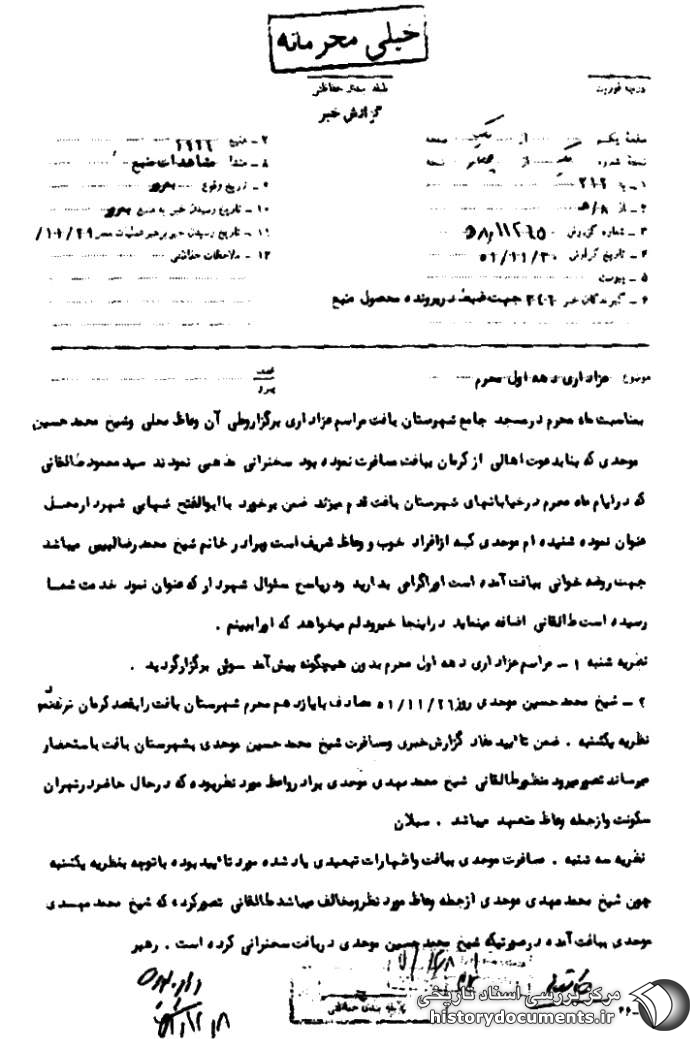 خیلی محرمانه
درجه فوریت
طبقه بندی حفاظتی
گزارش خبر
صفحه یکم از یک صفحه
نسخه شماره یک از چهار نسخه
۱ ـ به ۳۱۲
۲ ـ از ۸/ه
۳ ـ شماره گزارش
۴ ـ تاریخ گزارش ۵۱/۱۱/۳۰
۵ ـ پیوست
۶ ـ گیرندگان خبر جهت ضبط در پرونده محصول منبع
۷ ـ منبع
۸ ـ منشا مشاهدات منبع
۹ ـ تاریخ وقوع بمرور
۱۰ ـ تاریخ رسیدن خبر به منبع بمرور
۱۱ ـ تاریخ رسیدن خبر برهبر عملیات
۱۲ ـ ملاحظات حفاظتی
موضوع عزاداری دهه اول محرم
بمناسبت ماه محرم در مسجد جامع شهرستان بافت مراسم عزاداری برگزار وطی آن وعاظ محلی وشیخ محمد حسین
موحدی که بنا بدعوت اهالی از کرمان ببافت مسافرت نموده بود سخنرانی مذهبی نمودند سید محمود طالقانی
که در ایام ماه محرم در خیابانهای شهرستان بافت قدم میزند ضمن برخورد با ابوالفتح شهابی شهردار محل
عنوان نموده شنیده ام موحدی که از افراد خوب و وعاظ شریف است وبرادر خانم شیخ محمد رضا لبیبی میباشد
جهت روضه خوانی ببافت آمده است اورا گرامی بدارید ودر پاسخ سئوال شهردار که عنوان نمود خدمت شما
رسیده است طالقانی اضافه مینماید در اینجا خیر ودلم میخواهد که اورا ببینم .
نظریه شنبه ۱ ـ مراسم عزاداری دهه اول محرم بدون هیچگونه پیش آمد سوئی برگزار گردید .
۲ ـ شیخ محمد حسین موحدی روز ۵۱/۱۱/۲۶ مصادف با یازدهم محرم شهرستان بافت را بقصد کرمان ترک نمود
نظریه یکشنبه . ضمن تائید مفاد گزارش خبری ومسافرت شیخ محمد حسین موحدی بشهرستان بافت باستحضار
میرساند تصور میرود منظور طالقانی شیخ محمد مهدی موحدی برادر واعظ مورد نظر بوده که در حال حاضر در تهران
سکونت واز جمله وعاظ متعهد میباشد . سبلان
نظریه سه شنبه . مسافرت موحدی ببافت واظهارات تبعیدی یاد شده مورد تائید بوده با توجه بنظریه یکشنبه
چون شیخ محمد مهدی موحدی از جمله وعاظ مورد نظر ومخالف میباشد طالقانی تصور کرده که شیخ محمد مهدی
موحدی ببافت آمده در صورتیکه شیخ محمد حسین موحدی در بافت سخنرانی کرده است . رهبر
طبقه بندی حفاظتی
مرکز بررسی اسناد تاریخی
historydocuments.ir